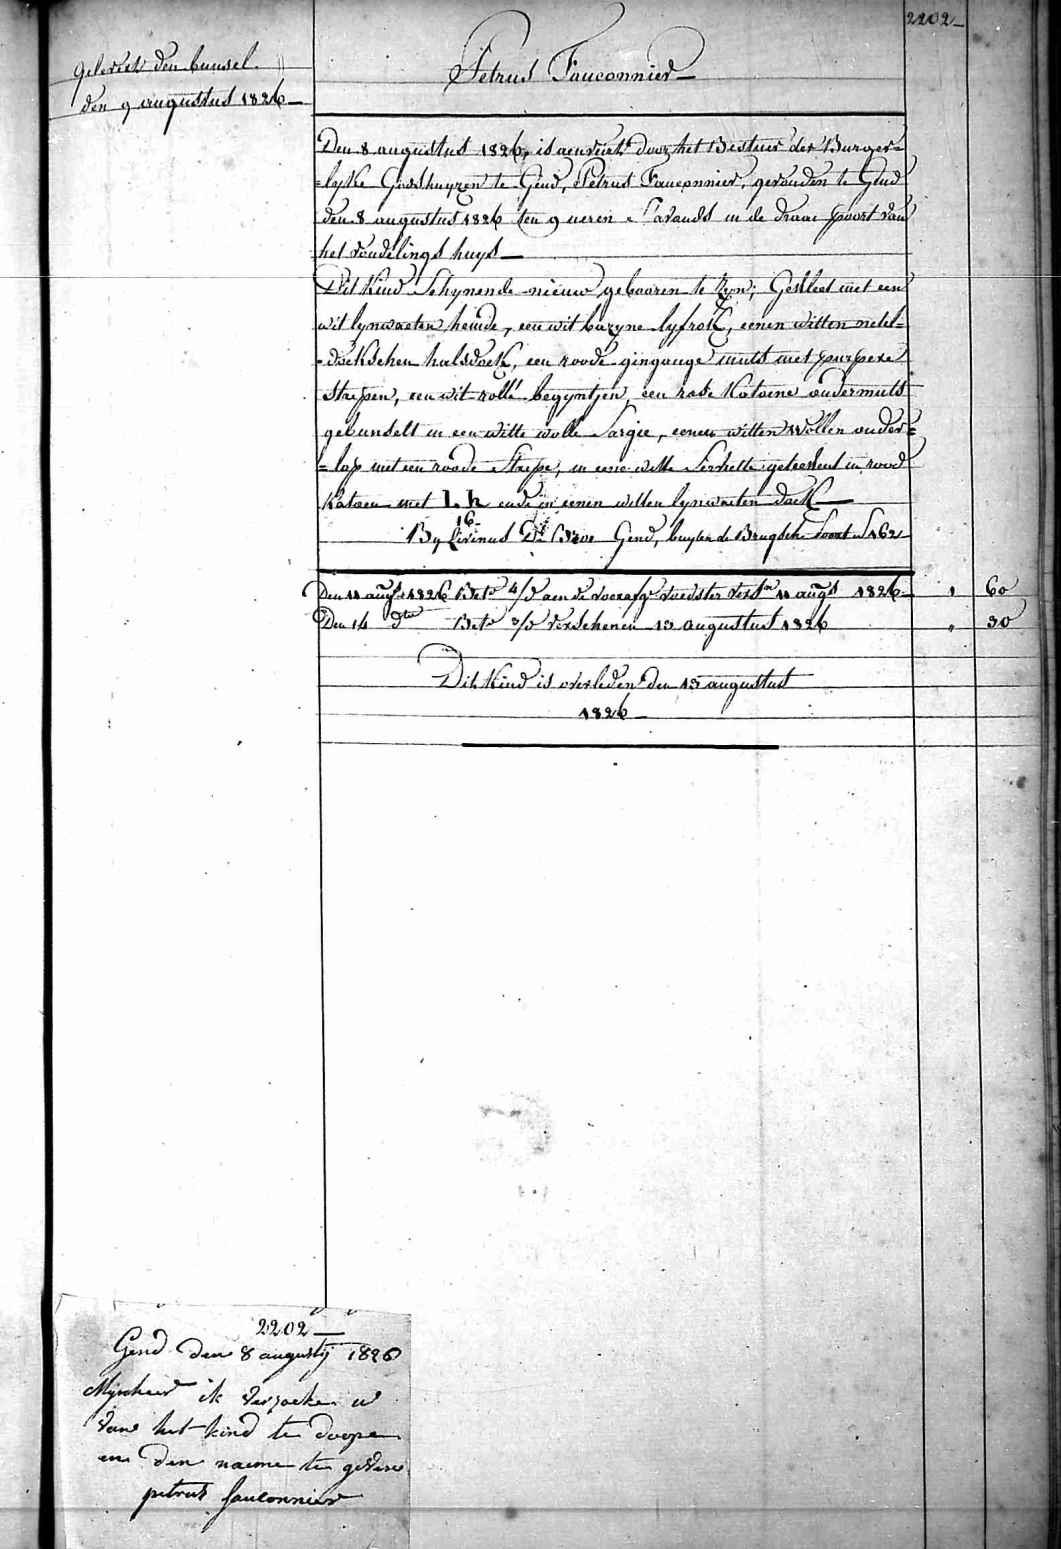 2202
gelevert den bunsel
den 9 augustus 1826
Petrus Fauconnier
Den 8 augustus 1826, is aenveirt door het Bestuer der Burger=
=lyke Godshuyzen te Gend, Petrus Fauconnier, gevonden te Gend
den 8 augustus 1826 ten 9 ueren s'avonds in de draai poort van
het vondelings huys
Dit Kind Schynende nieuw gebooren te Zyn; Gekleet met een
wit lynwaeten hemde, een wit bazyne lyfrok, eenen witten netel=
=doekschen halsdoek, een roode gingange muts met purpere
Strepen, een wit rolle begyntjen, een rose Katoene ondermuts
gebunselt in een witte wolle Sargie, eenen witten wollen onder=
=lap met een roode Strepe, in eene witte Serviette geteekent in rood
Katoen met I. h ende in eenen witten lynwaeten doek
16
By Livinus De Gend, buyten de Brugsche Poort N 162
Den 11 augs 1826 Bete 4/d aen de voorzge voedster verstn 11 augs 1826 " 60
Den 14 dto Bete 3/d verschenen 13 augustus 1826 " 30
Dit Kind is overleden den 13 augustus
1826
2202
Gend den 8 augustij 1826
Mijnheer ik versoeke u
van het kind te doopen
en den naeme te geven
petrus fauconnier